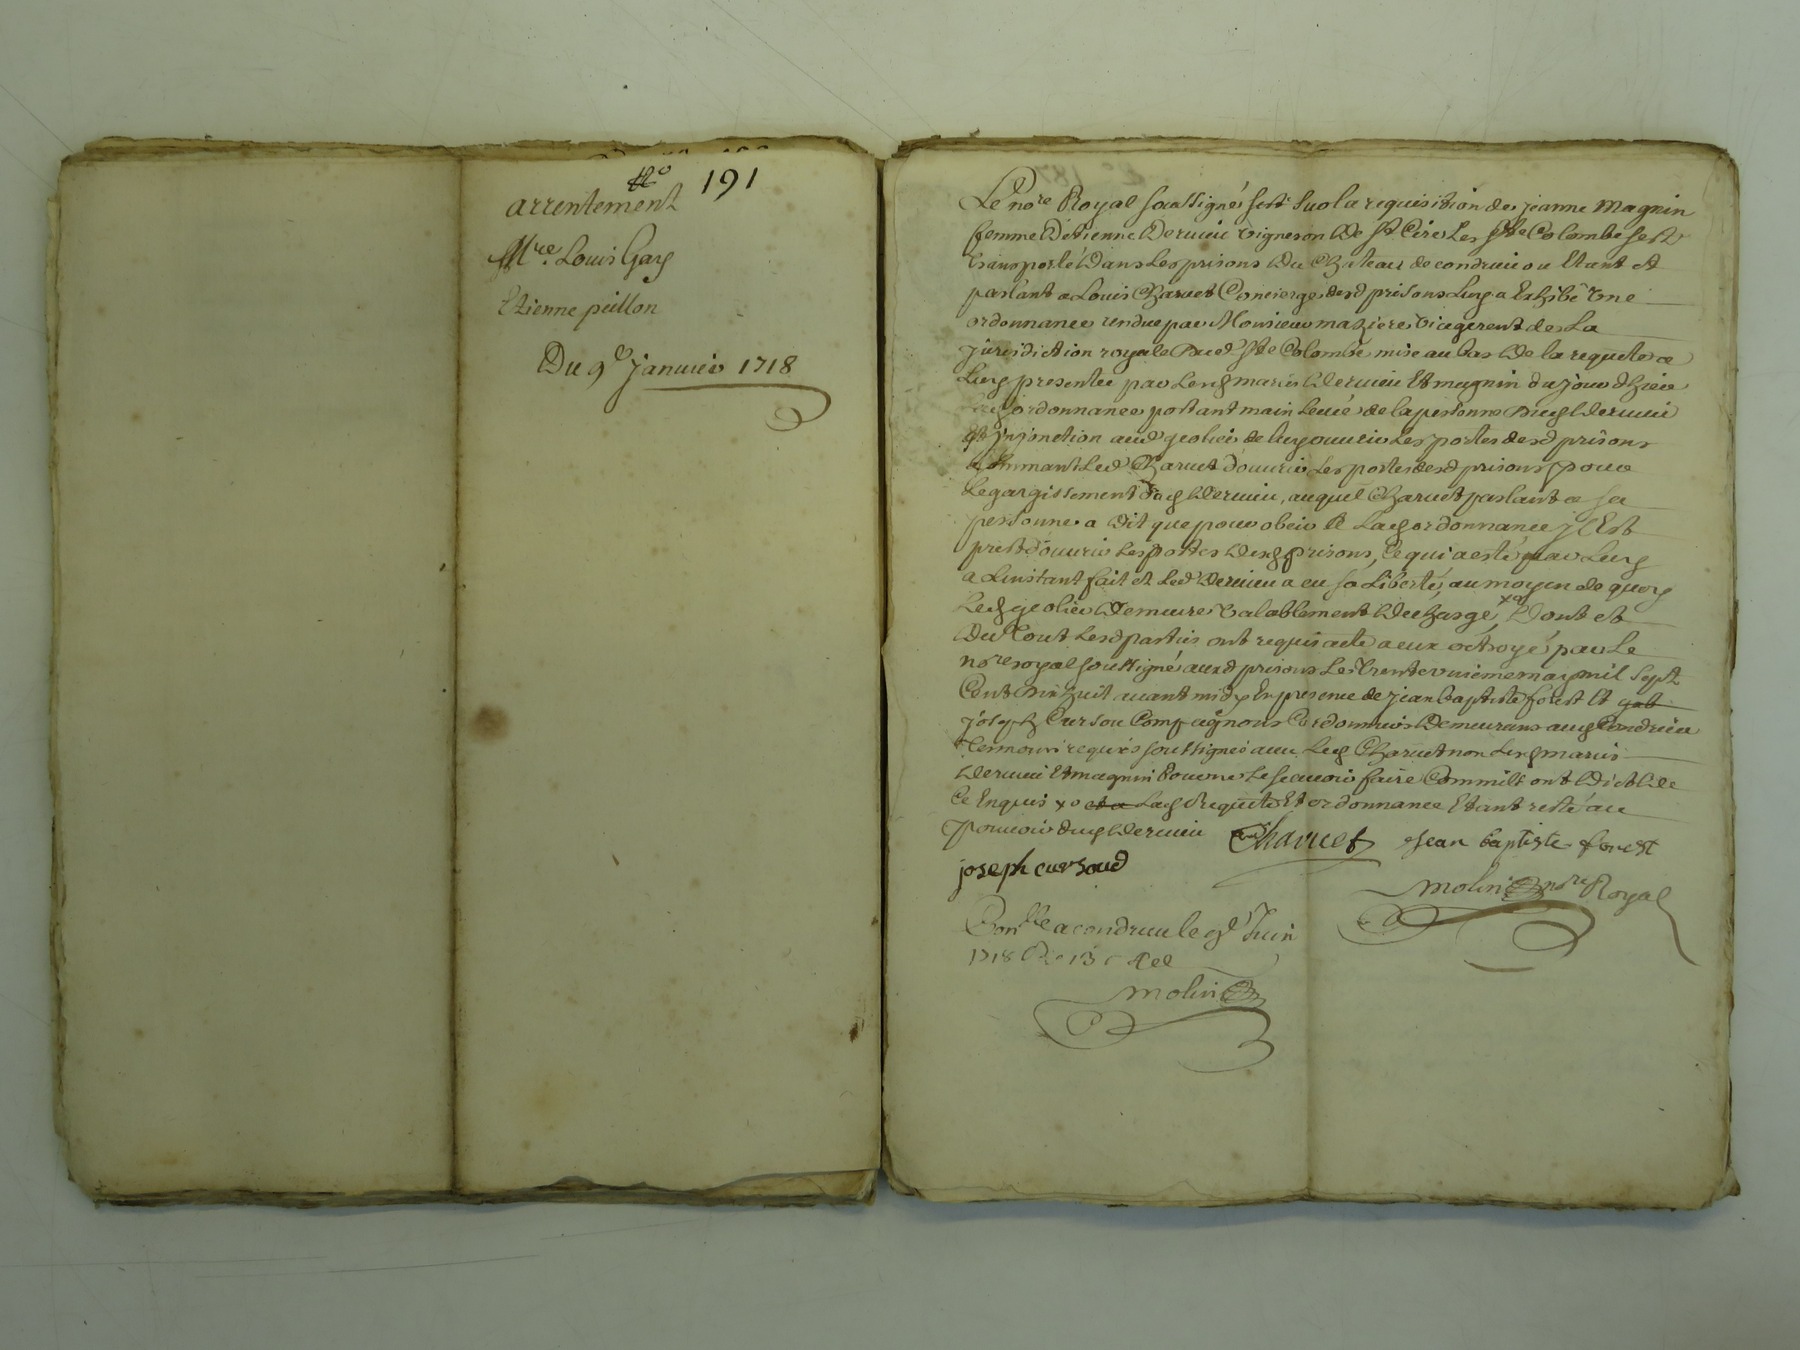 No 191
arrentement
Mre. Louis Gay
Etienne peillon
Du 9e janvier 1718
Le nore Royal soussigné sest sur la requisition de jeanne Magnin
femme Detienne Dervieu vigneron De St Cire Les Ste Colombe sest
transporté Dans Les prisons Du Chateau de condrieu ou Etant et
parlant a Louis Charvet Concierge desd prisons Luy a Exhibé Une
ordonnance rendue par Monsieur maziere vicegerent de La
jurisdiction royale Dud Ste Colombe mise au bas De la requete a
Luy presentée par Lesd mariés Dervieu Et magnin du jour dhier
ordonnance portant main levée de la personne Dud Dervieu
Et jnjonction aud geolier de luy ouvrir Les portes desd prisons
Sommant Led Charvet douvrir Les portes desd prisons pour
Lelargissement Dud Dervieu, auquel Charvet parlant a sa
personne a Dit que pour obeir a Lad ordonnance jl Est
prest douvrir Les portes Desd prisons, Ce qui a esté par Luy
a Linstant fait et Led Dervieu a eu sa Liberté, au moyen de quoy
Led geolier Demeure valablement Decharge, xo Dont et
Du tout Lesd parties ont requis acte a eux octroyé par Le
nore royal soussigné auxd prisons Le trente unieme may mil sept
Cent Dix huit avant midy En presence de jean baptiste forest Et
joseph Cursou Compagnons Cordonniers Demeurans aud Condrieu
temoins requis soussignés avec Led Charvet non Lesd mariés
Dervieu Et magnin Pour ne Le scavoir faire Comm ils ont Dict De
Ce Enquis xo et a Lad Requete Et ordonnance Etant resté au
pouvoir dud Dervieu Charvet Jean baptiste forest
joseph cursoud
molin nore Royal
Conlle a condrieu le 9e Juin
1718 R 13 s
molin